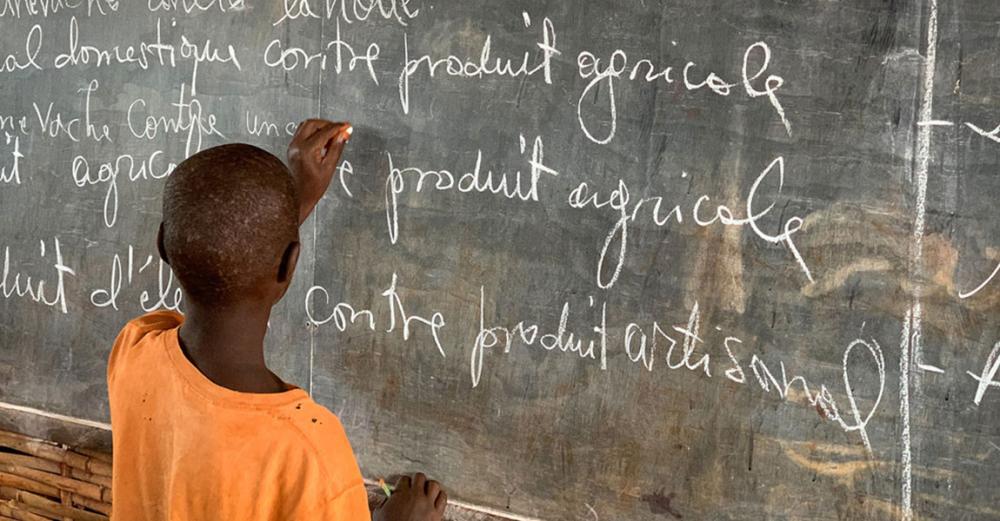 contre la houe.
al domestique contre produit agricole
ne vache contre une
it agric e produit agricole
duit d'éle contre produit artisanal